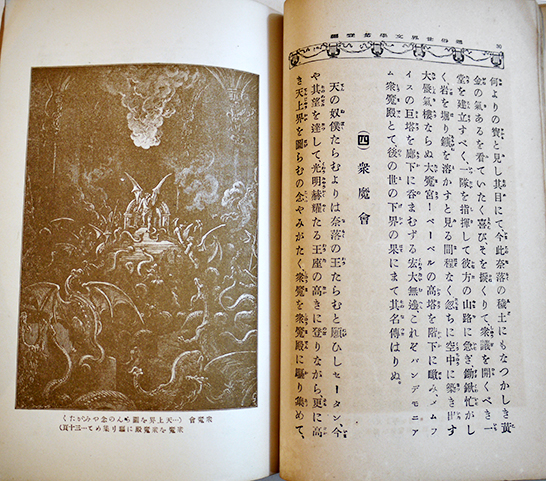 通俗世界文學第壹編
何よりの寶と見し其目にて今此奈落の穢土にもなつかしき黃
金の氣あるを看ていたく喜びそを振くりて、衆議を開くべき一
堂を建立すべく、一隊を指揮して彼方の山路に急ぎ、鋤鍬忙がし
く、岩を堀り鐵を溶かすと見る間程なく忽ちに空中に築き出す
大蜃氣樓ならぬ大魔宮！ベーベルの高塔を階下に瞰み、メムフ
イスの巨塔を廊下に呑まむずる宏大無邊、これぞパンデモニア
ム衆魔殿とて、後の世の下界の果にまで其名傳はりぬ。
(四) 衆魔會
天の奴僕たらむよりは奈落の王たらむと願ひしセータン、今
や其望を達して、光明赫耀たる王座の高きに登りながら、更に高
き天上界を圖らむの念やみがたく衆魔を衆魔殿に驅り集めて、
衆魔會(…天上界を圖らんの念やみがたく
衆魔を衆魔殿に驅り集めて…三十頁)